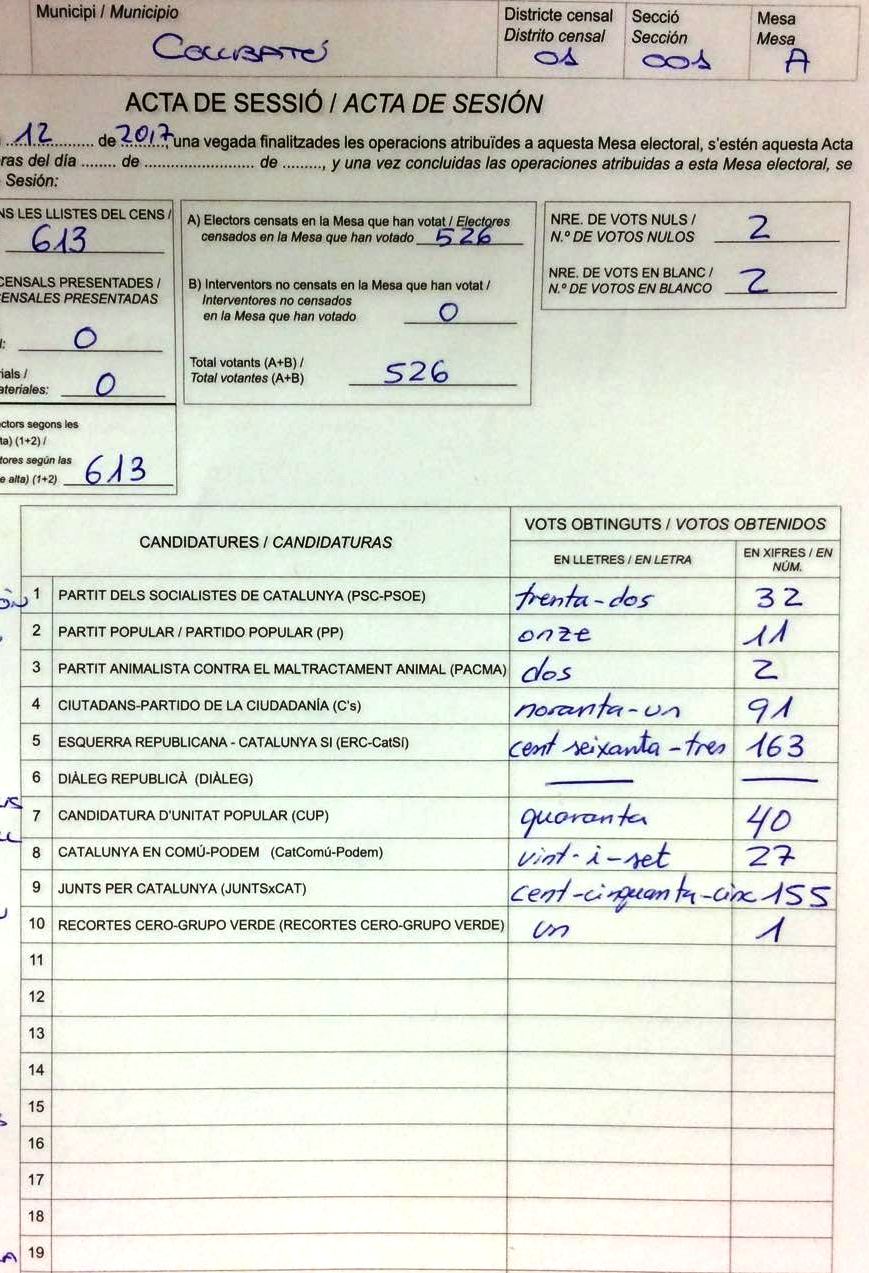 Municipi / Municipio
COLLBATÓ
Districte censal
Distrito censal
01
Secció
Sección
001
Mesa
Mesa
A
ACTA DE SESSIÓ / ACTA DE SESIÓN
12 de 2017, una vegada finalitzades les operacions atribuïdes a aquesta Mesa electoral, s'estén aquesta Acta
ras del día ........ de ........................ de ........., y una vez concluidas las operaciones atribuidas a esta Mesa electoral, se
Sesión:
NS LES LLISTES DEL CENS /
613
CENSALS PRESENTADES /
CENSALES PRESENTADAS
l: 0
rials /
ateriales: 0
ctors segons les
ta) (1+2) /
tores según las
e alta) (1+2) 613
A) Electors censats en la Mesa que han votat / Electores
censados en la Mesa que han votado 526
B) Interventors no censats en la Mesa que han votat /
Interventores no censados
en la Mesa que han votado 0
Total votants (A+B) /
Total votantes (A+B) 526
NRE. DE VOTS NULS /
N.º DE VOTOS NULOS 2
NRE. DE VOTS EN BLANC /
N.º DE VOTOS EN BLANCO 2
CANDIDATURES / CANDIDATURAS
VOTS OBTINGUTS / VOTOS OBTENIDOS
EN LLETRES / EN LETRA
EN XIFRES / EN
NÚM.
1 PARTIT DELS SOCIALISTES DE CATALUNYA (PSC-PSOE) trenta-dos 32
2 PARTIT POPULAR / PARTIDO POPULAR (PP) onze 11
3 PARTIT ANIMALISTA CONTRA EL MALTRACTAMENT ANIMAL (PACMA) dos 2
4 CIUTADANS-PARTIDO DE LA CIUDADANÍA (C's) noranta-un 91
5 ESQUERRA REPUBLICANA - CATALUNYA SI (ERC-CatSí) cent seixanta-tres 163
6 DIÀLEG REPUBLICÀ (DIÀLEG)
7 CANDIDATURA D'UNITAT POPULAR (CUP) quaranta 40
8 CATALUNYA EN COMÚ-PODEM (CatComú-Podem) vint-i-set 27
9 JUNTS PER CATALUNYA (JUNTSxCAT) cent-cinquanta-cinc 155
10 RECORTES CERO-GRUPO VERDE (RECORTES CERO-GRUPO VERDE) un 1
11
12
13
14
15
16
17
18
19